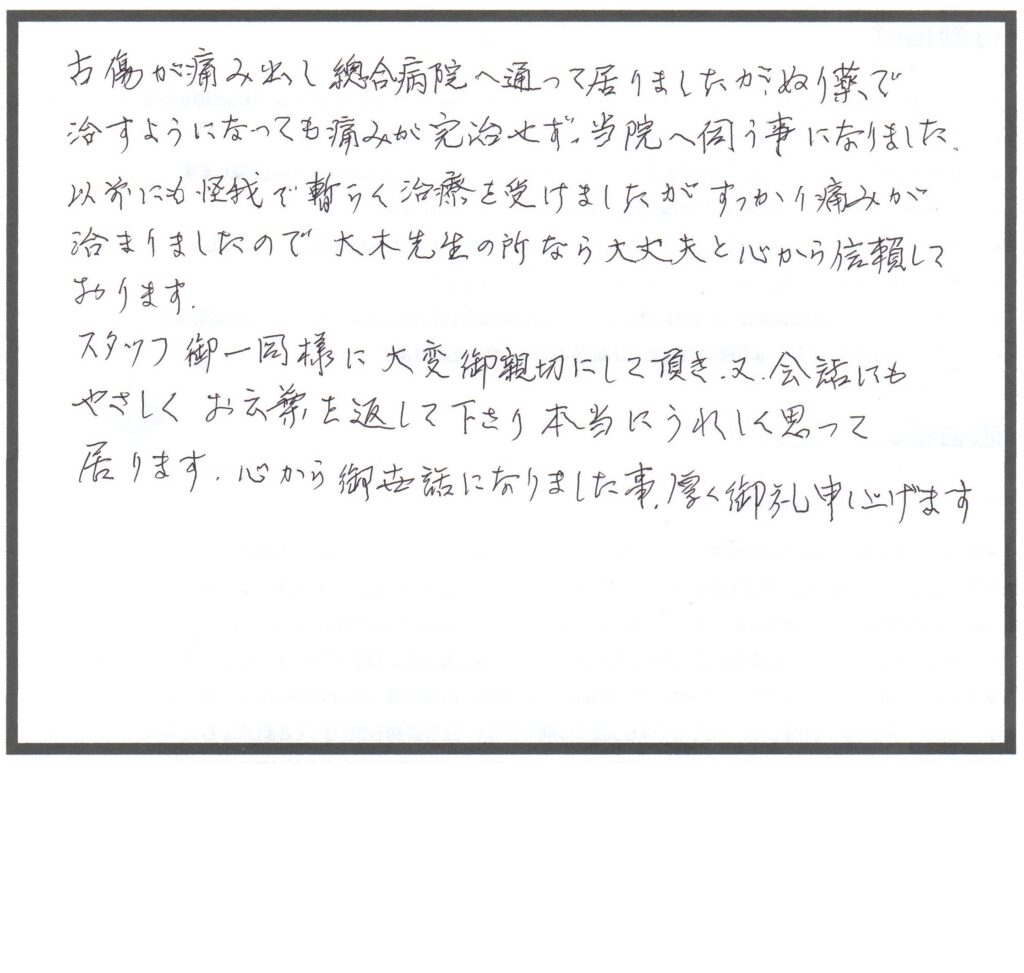 古傷が痛み出し總合病院へ通って居りましたがぬり薬で
治すようになっても痛みが完治せず。当院へ伺う事になりました.
以前にも怪我で暫らく治療を受けましたがすっかり痛みが
治まりましたので 大木先生の所なら大丈夫と心から信頼して
おります.
スタッフ御一同様に大変御親切にして頂き.又.会話にも
やさしく お言葉を返して下さり本当にうれしく思って
居ります. 心から御世話になりました事.厚く御礼申し上げます